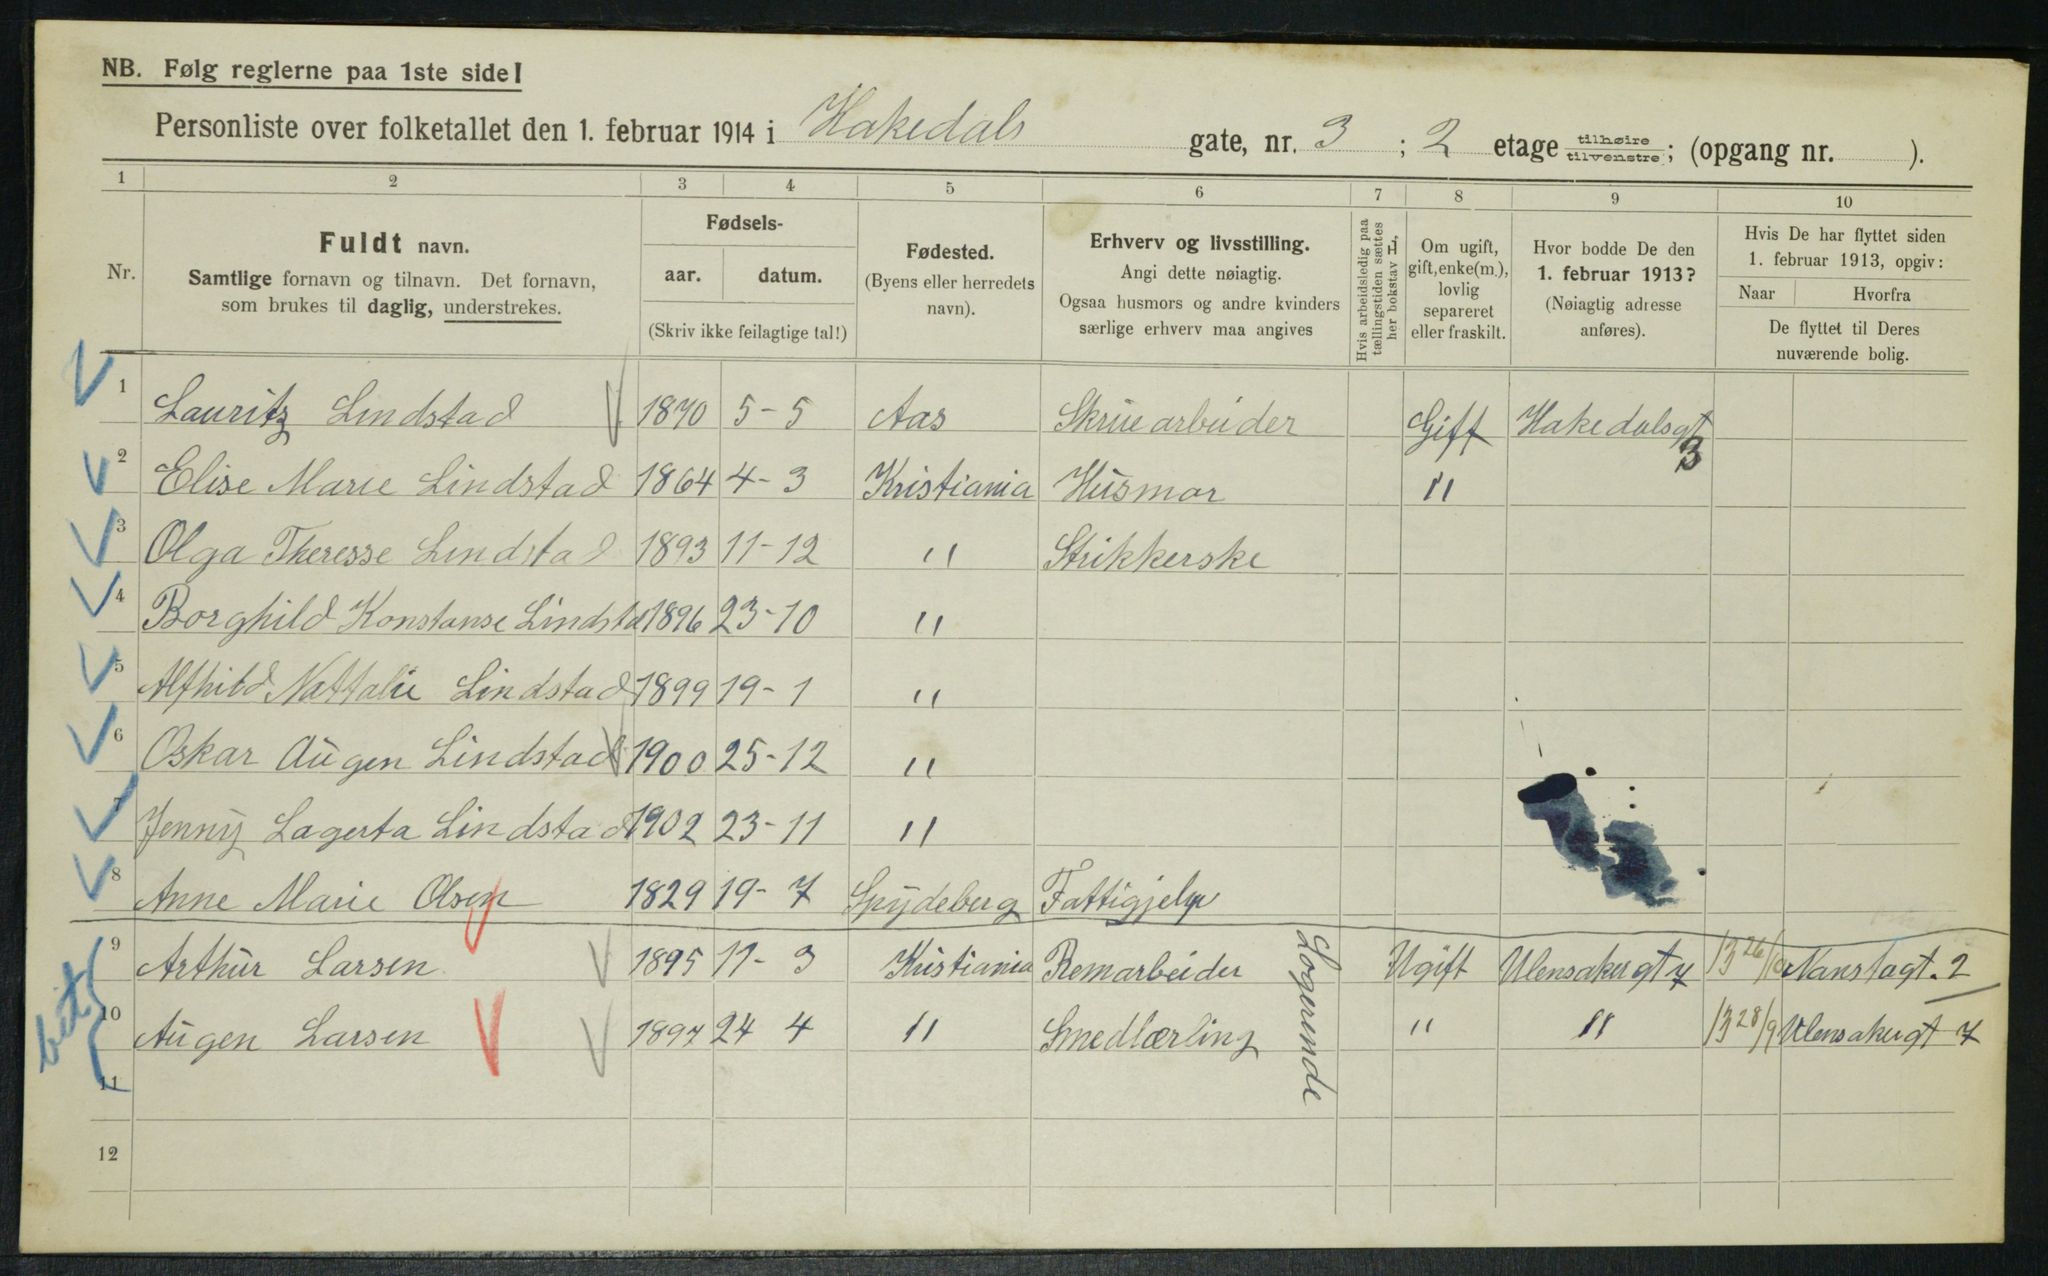 NB. Følg reglerne paa 1ste side!
Personliste over folketallet den 1. februar 1914 i Hakedals gate, nr. 3 ; 2 etage tilhøire tilvenstre; (opgang nr. ).
1 2 3 4 5 6 7 8 9 10
Nr.
Fuldt navn.
Samtlige fornavn og tilnavn. Det fornavn,
som brukes til daglig, understrekes.
Fødsels-
aar. datum.
(Skriv ikke feilagtige tal!)
Fødested.
(Byens eller herredets
navn).
Erhverv og livsstilling.
Angi dette nøiagtig.
Ogsaa husmors og andre kvinders
særlige erhverv maa angives
Hvis arbeidsledig paa
tællingstiden sættes
her bokstav H,
Om ugift,
gift, enke(m.),
lovlig
separeret
eller fraskilt.
Hvor bodde De den
1. februar 1913?
(Nøiagtig adresse
anføres).
Hvis De har flyttet siden
1. februar 1913, opgiv:
Naar Hvorfra
De flyttet til Deres
nuværende bolig.
1 Lauritz Lindstad 1870 5-5 Aas Skruearbeider Gift Hakedalsgt 3
2 Elise Marie Lindstad 1864 4-3 Kristiania Husmor "
3 Olga Theresse Lindstad 1893 11-12 " Strikkerske
4 Borghild Konstanse Lindstd 1896 23-10 "
5 Alfhild Nattalie Lindstad 1899 19-1 "
6 Oskar Augen Lindstad 1900 25-12 "
7 Jenny Lagerta Lindstad 1902 23-11 "
8 Anne Marie Olsen 1829 19-7 Spydeberg Fattigjelp
9 Arthur Larsen 1895 11-3 Kristiania Remarbeider Ugift Ulensakergt 7 13 26/10 Nanstagt. 2
10 Augen Larsen 1897 24 4 " Smedlærling " " 13 28/9 Ulensakergt 7
Logerende
11
12